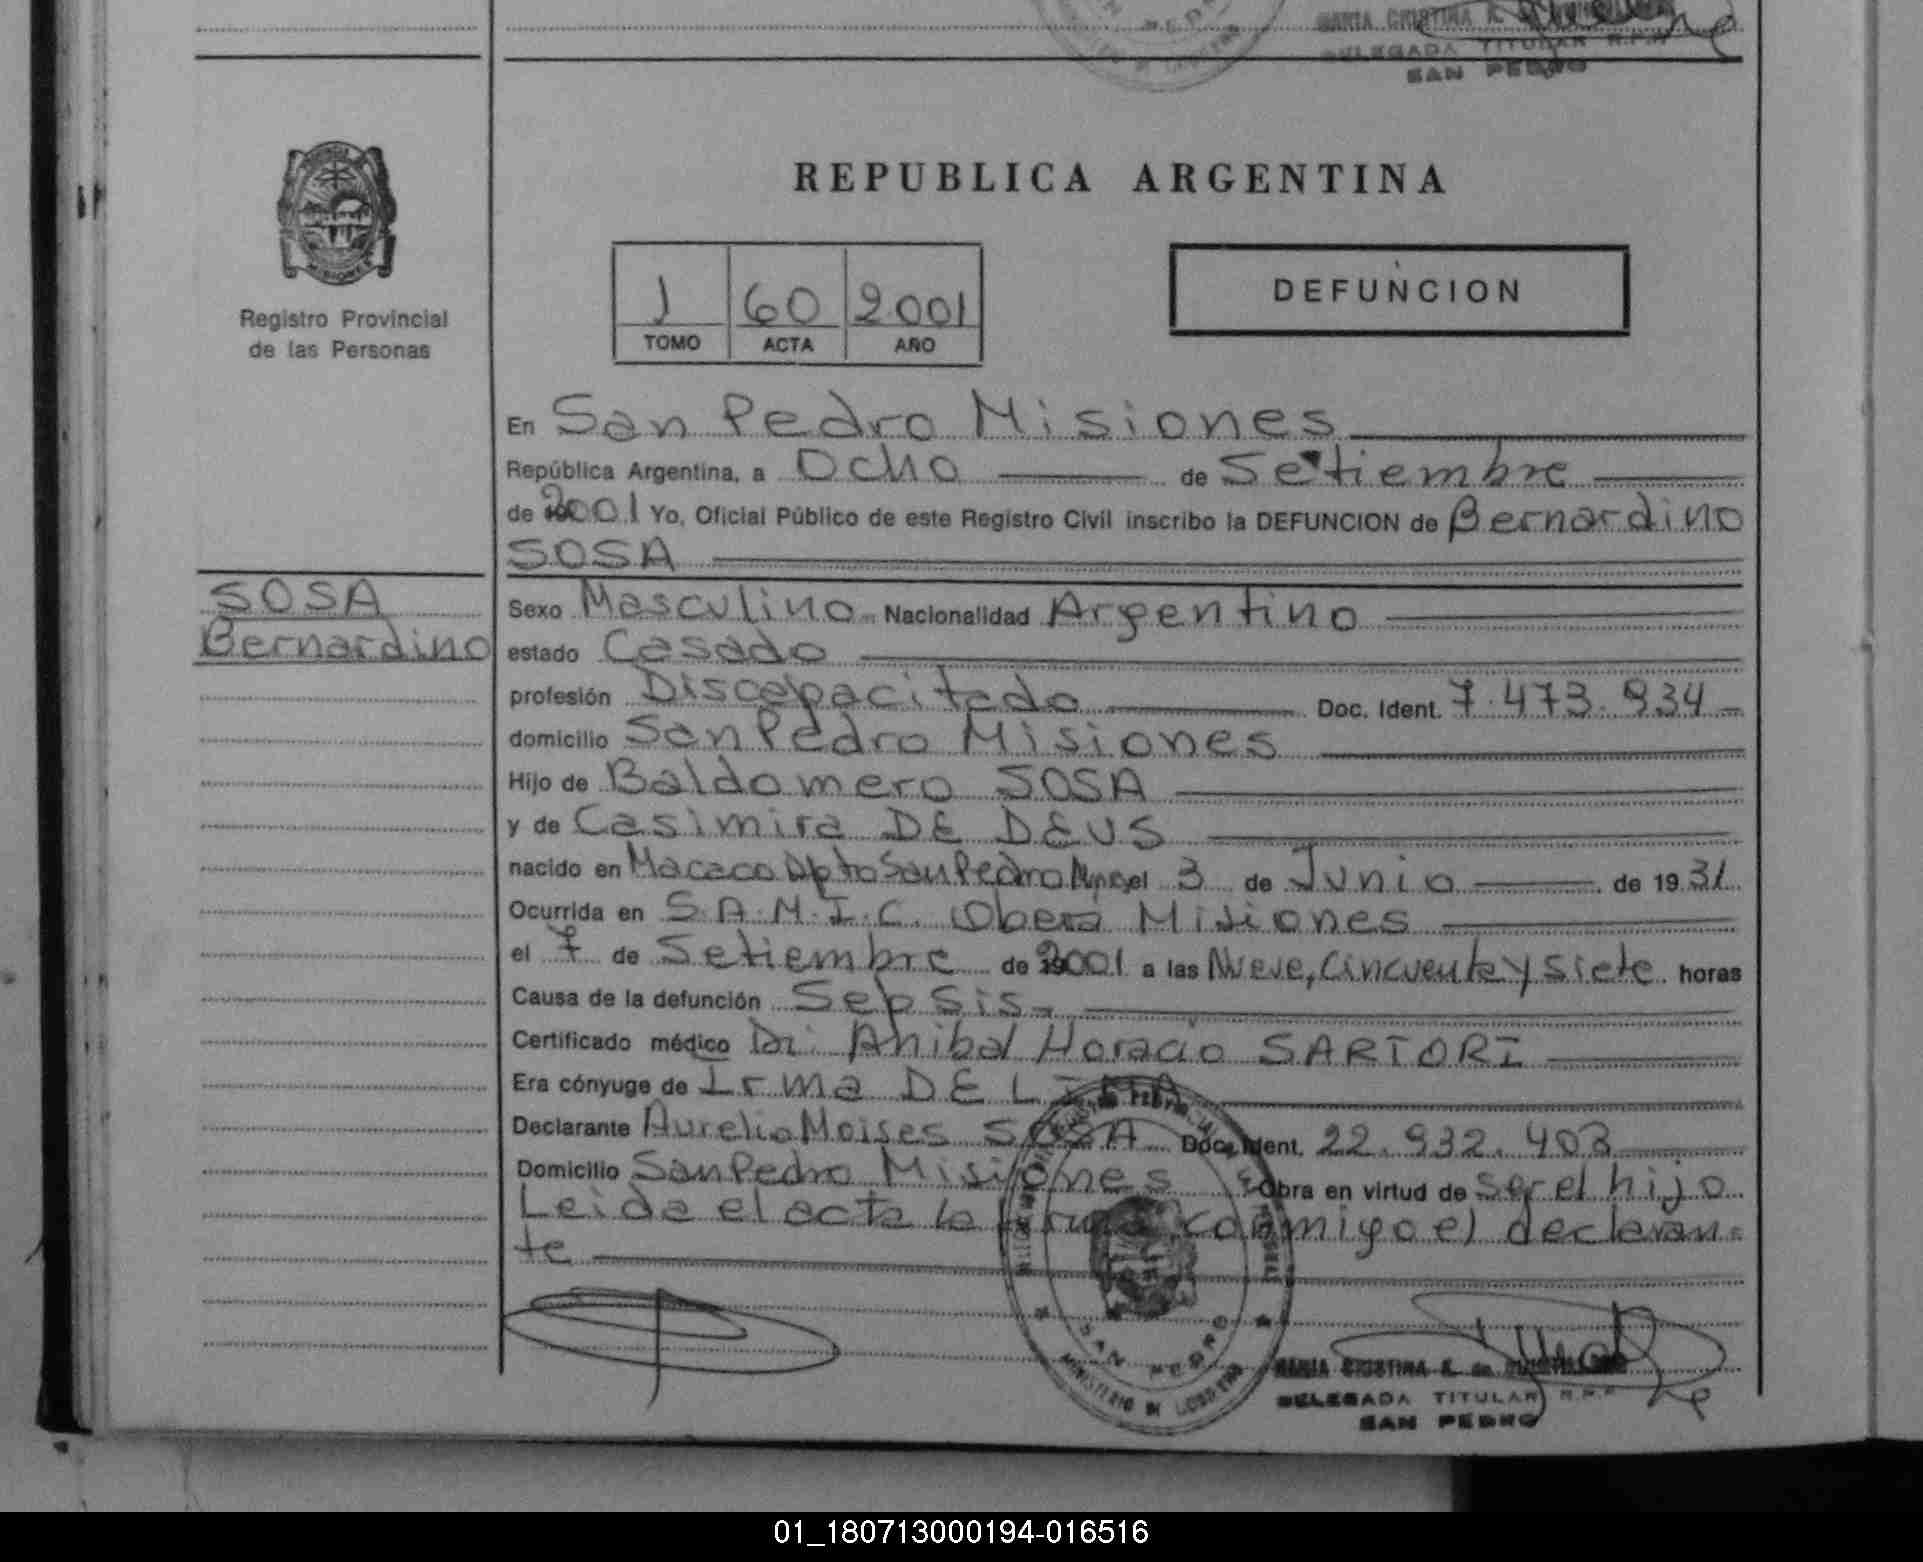 MARIA CRISTINA R. de
DELEGADA TITULAR R.P.P
SAN PEDRO
REPUBLICA ARGENTINA
PROVINCIA
MISIONES
Registro Provincial
de las Personas
J 60 2001
TOMO ACTA AÑO
DEFUNCION
En San Pedro Misiones
República Argentina, a Ocho de Setiembre
de 2001 Yo, Oficial Público de este Registro Civil inscribo la DEFUNCION de Bernardino
SOSA
SOSA
Bernardino
Sexo Masculino Nacionalidad Argentino
estado Casado
profesión Discapacitado Doc. Ident. 7.473.934
domicilio San Pedro Misiones
Hijo de Baldomero SOSA
y de Casimira DE DEUS
nacido en Macaco Dpto San Pedro Mnes el 3 de Junio de 1931
Ocurrida en S.A.M.I.C. Oberá Misiones
el 7 de Setiembre de 2001 a las Nueve, Cincuenta y Siete horas
Causa de la defunción Sepsis.-
Certificado médico Dr. Anibal Horacio SARTORI
Era cónyuge de Irma DE LIMA
Declarante Aurelio Moises SOSA Doc. Ident. 22.932.403
Domicilio San Pedro Misiones Obra en virtud de ser el hijo
Leida el acta la firma conmigo el declaran=
te
SAN PEDRO
MINISTERIO DE GOBIERNO
MARIA CRISTINA R. de
DELEGADA TITULAR R.P.P
SAN PEDRO
01_180713000194-016516